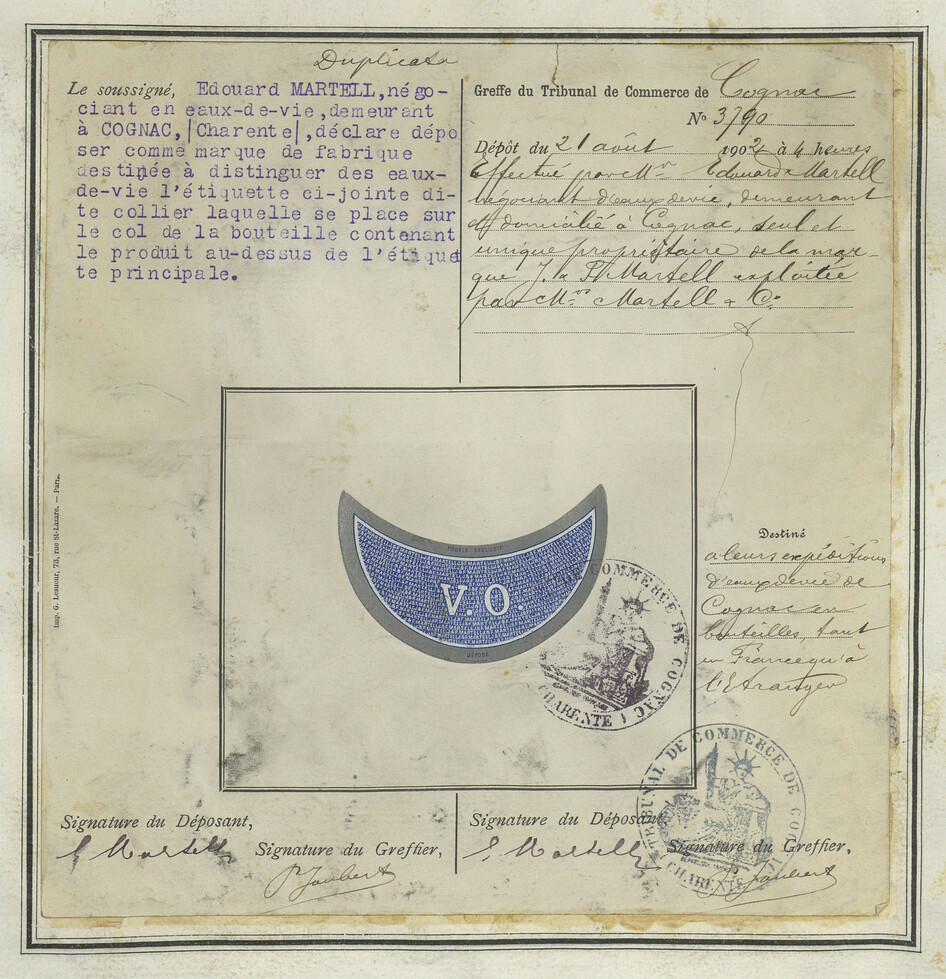 Duplicata
Le soussigné, Edouard MARTELL, négo-
ciant en eaux-de-vie, demeurant
à COGNAC, |Charente|, déclare dépo
ser comme marque de fabrique
destinée à distinguer des eaux-
de-vie l'étiquette ci-jointe di-
te collier laquelle se place sur
le col de la bouteille contenant
le produit au-dessus de l'étique
te principale.
Greffe du Tribunal de Commerce de Cognac
No 3790
Dépôt du 21 août 1902 à 4 heures
Effectué par Mr Edouard Martell
négociant d'eaux de vie, demeurant
et domicilié à Cognac, seul et
unique propriétaire de la mar-
que J. & F. Martell exploitée
par Mrs Martell & Co
MODÈLE EXCLUSIF
V.O.
DÉPOSÉ
DE COMMERCE DE COGNAC
CHARENTE
Destiné
a leurs expéditions
d'eaux de vie de
Cognac en
bouteilles, tant
en France qu'à
l'Etranger
Imp. G. Lemour, 73, rue St-Lazare. — Paris.
Signature du Déposant,
E Martell
Signature du Greffier,
P Joubert
Signature du Déposant,
E Martell
Signature du Greffier,
P. Joubert
TRIBUNAL DE COMMERCE DE COGNAC
CHARENTE